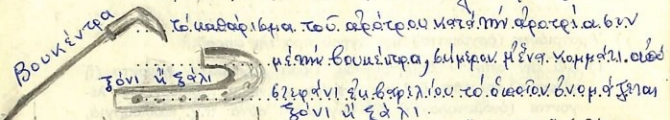 Βουκέντρα
τό καθάρισμα τοῦ ἀρότρου κατά τήν ἀροτρίασιν
μέ τήν βουκέντρα, σήμερον μ' ἕνα κομμάτι ἀπό
ξόνι ἤ ξάλι
στεφάνι ἐκ βαρελίου τό ὁποῖον ὀνομάζεται
ξόνι ἤ ξάλι.